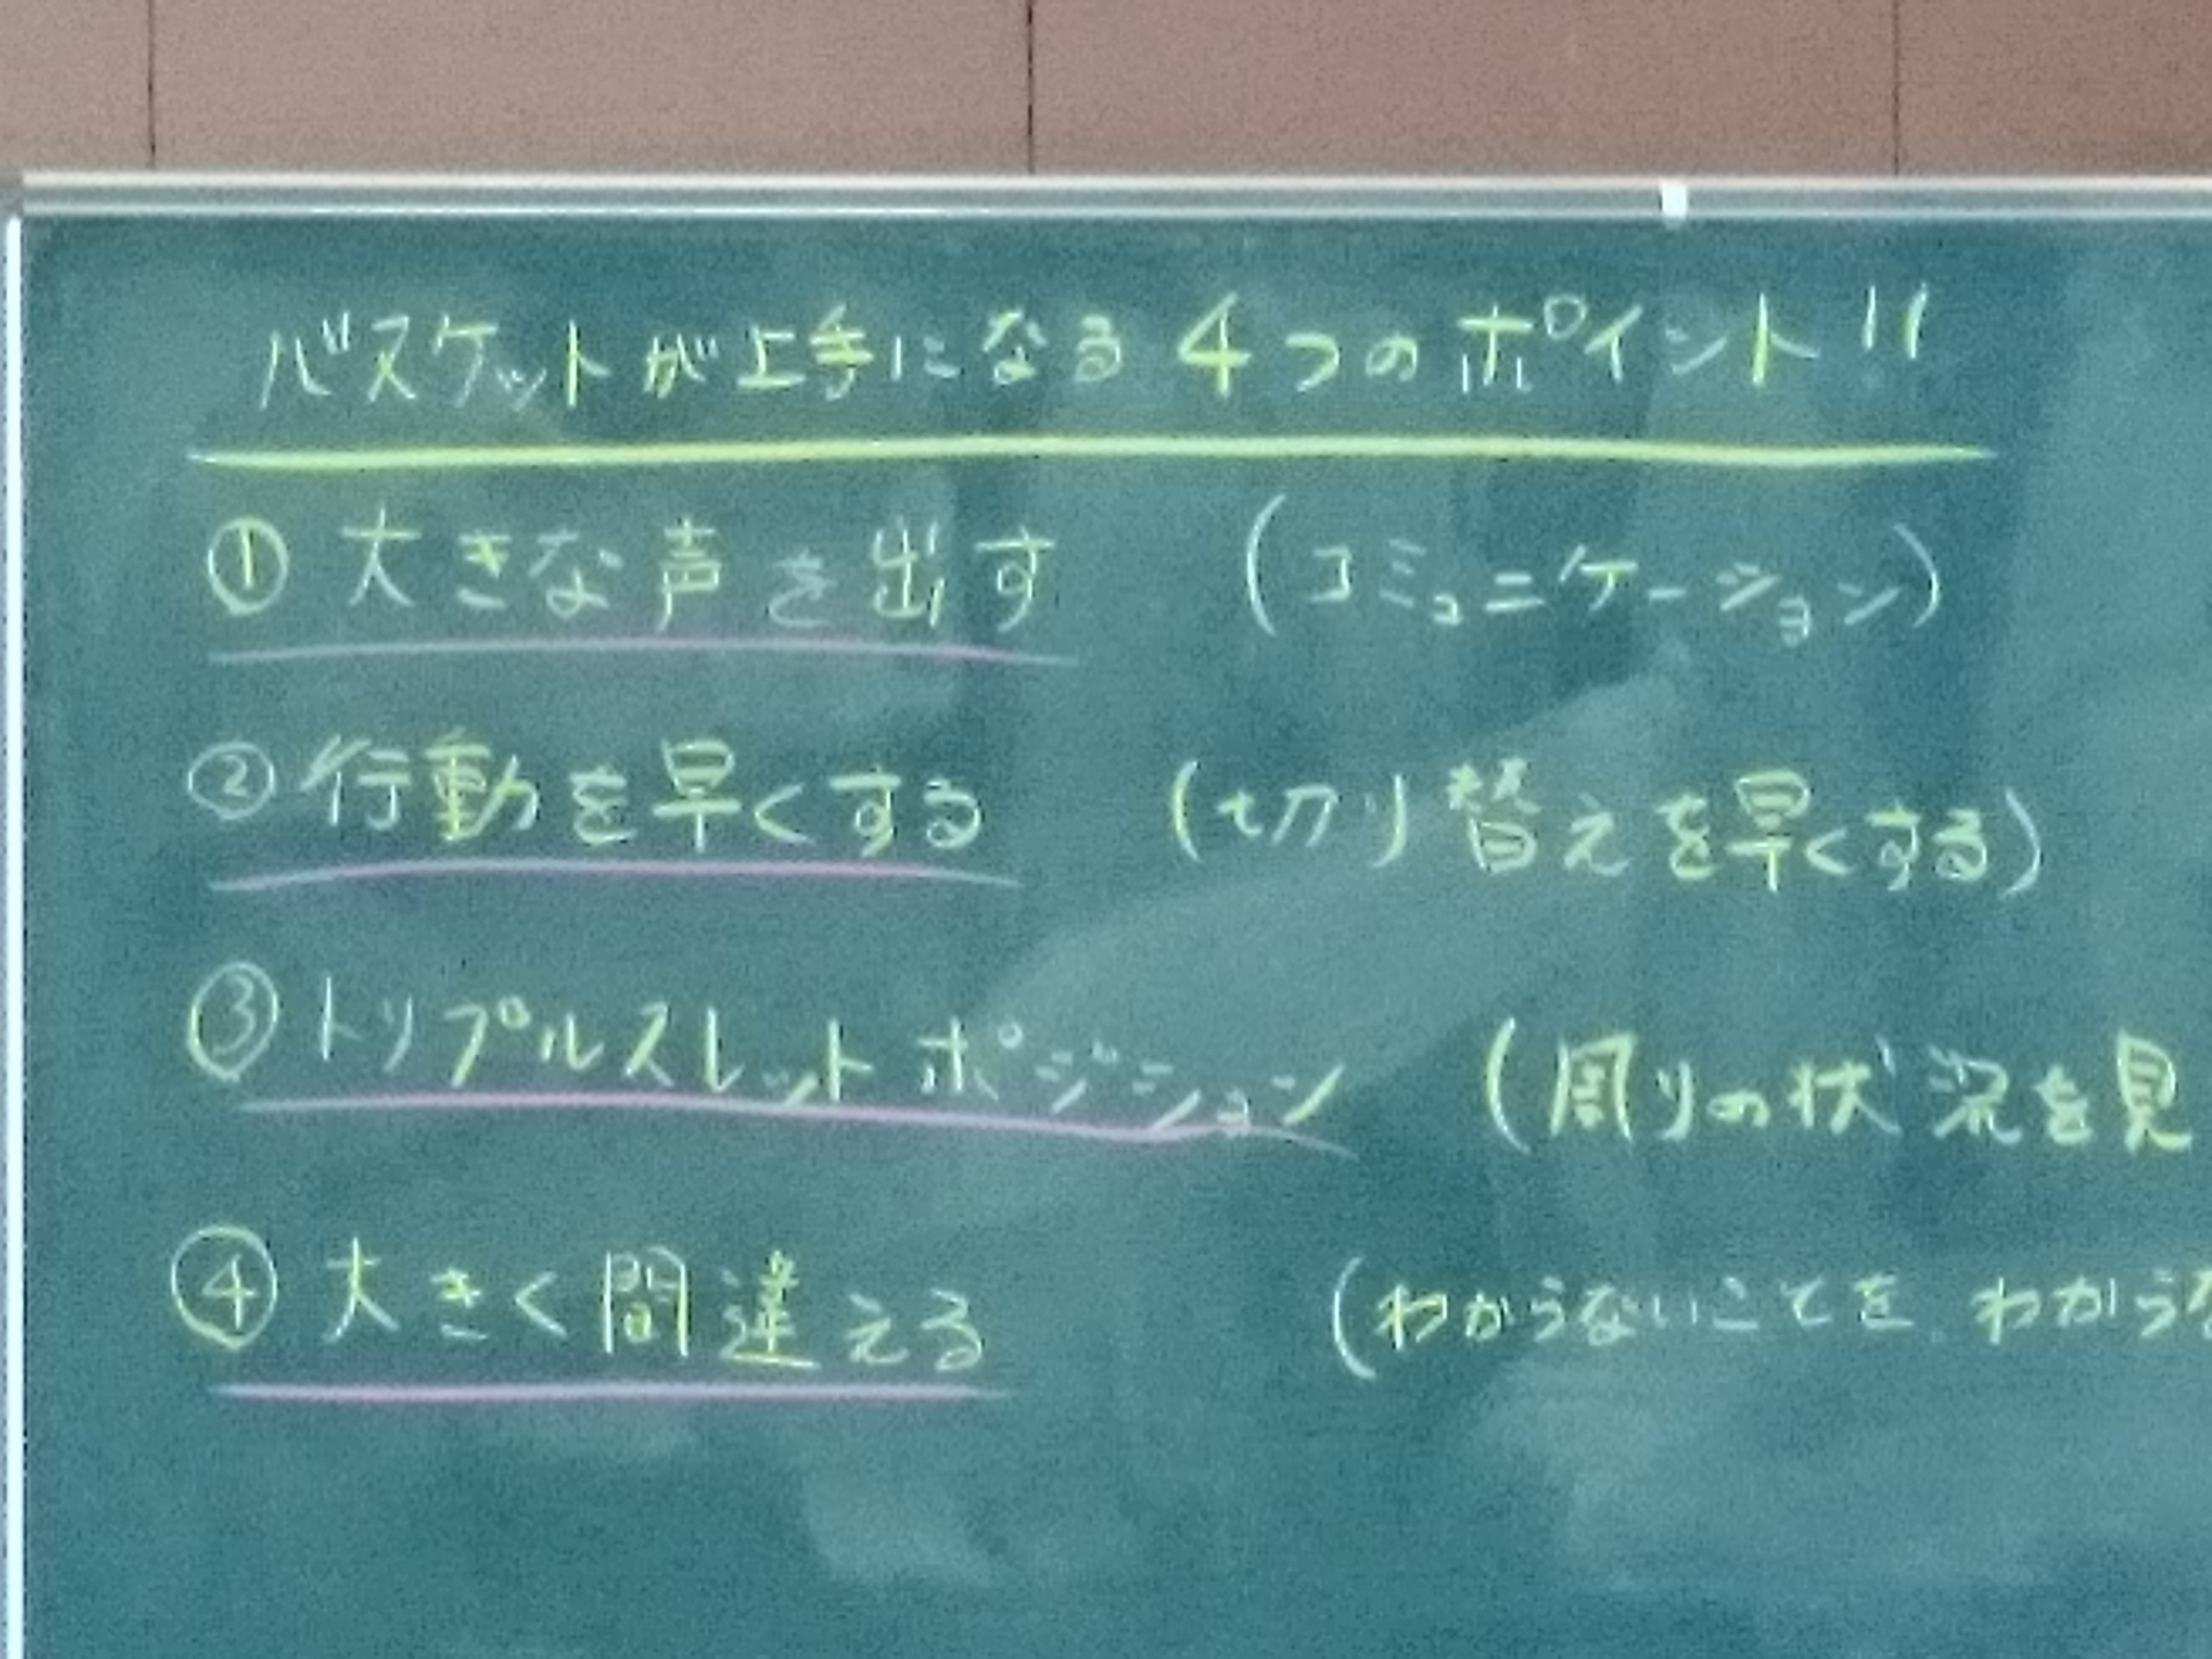 バスケットが上手になる4つのポイント!!
①大きな声を出す (コミュニケーション)
②行動を早くする (切り替えを早くする)
③トリプルスレットポジション (周りの状況を見
④大きく間違える (わからないことを、わからな